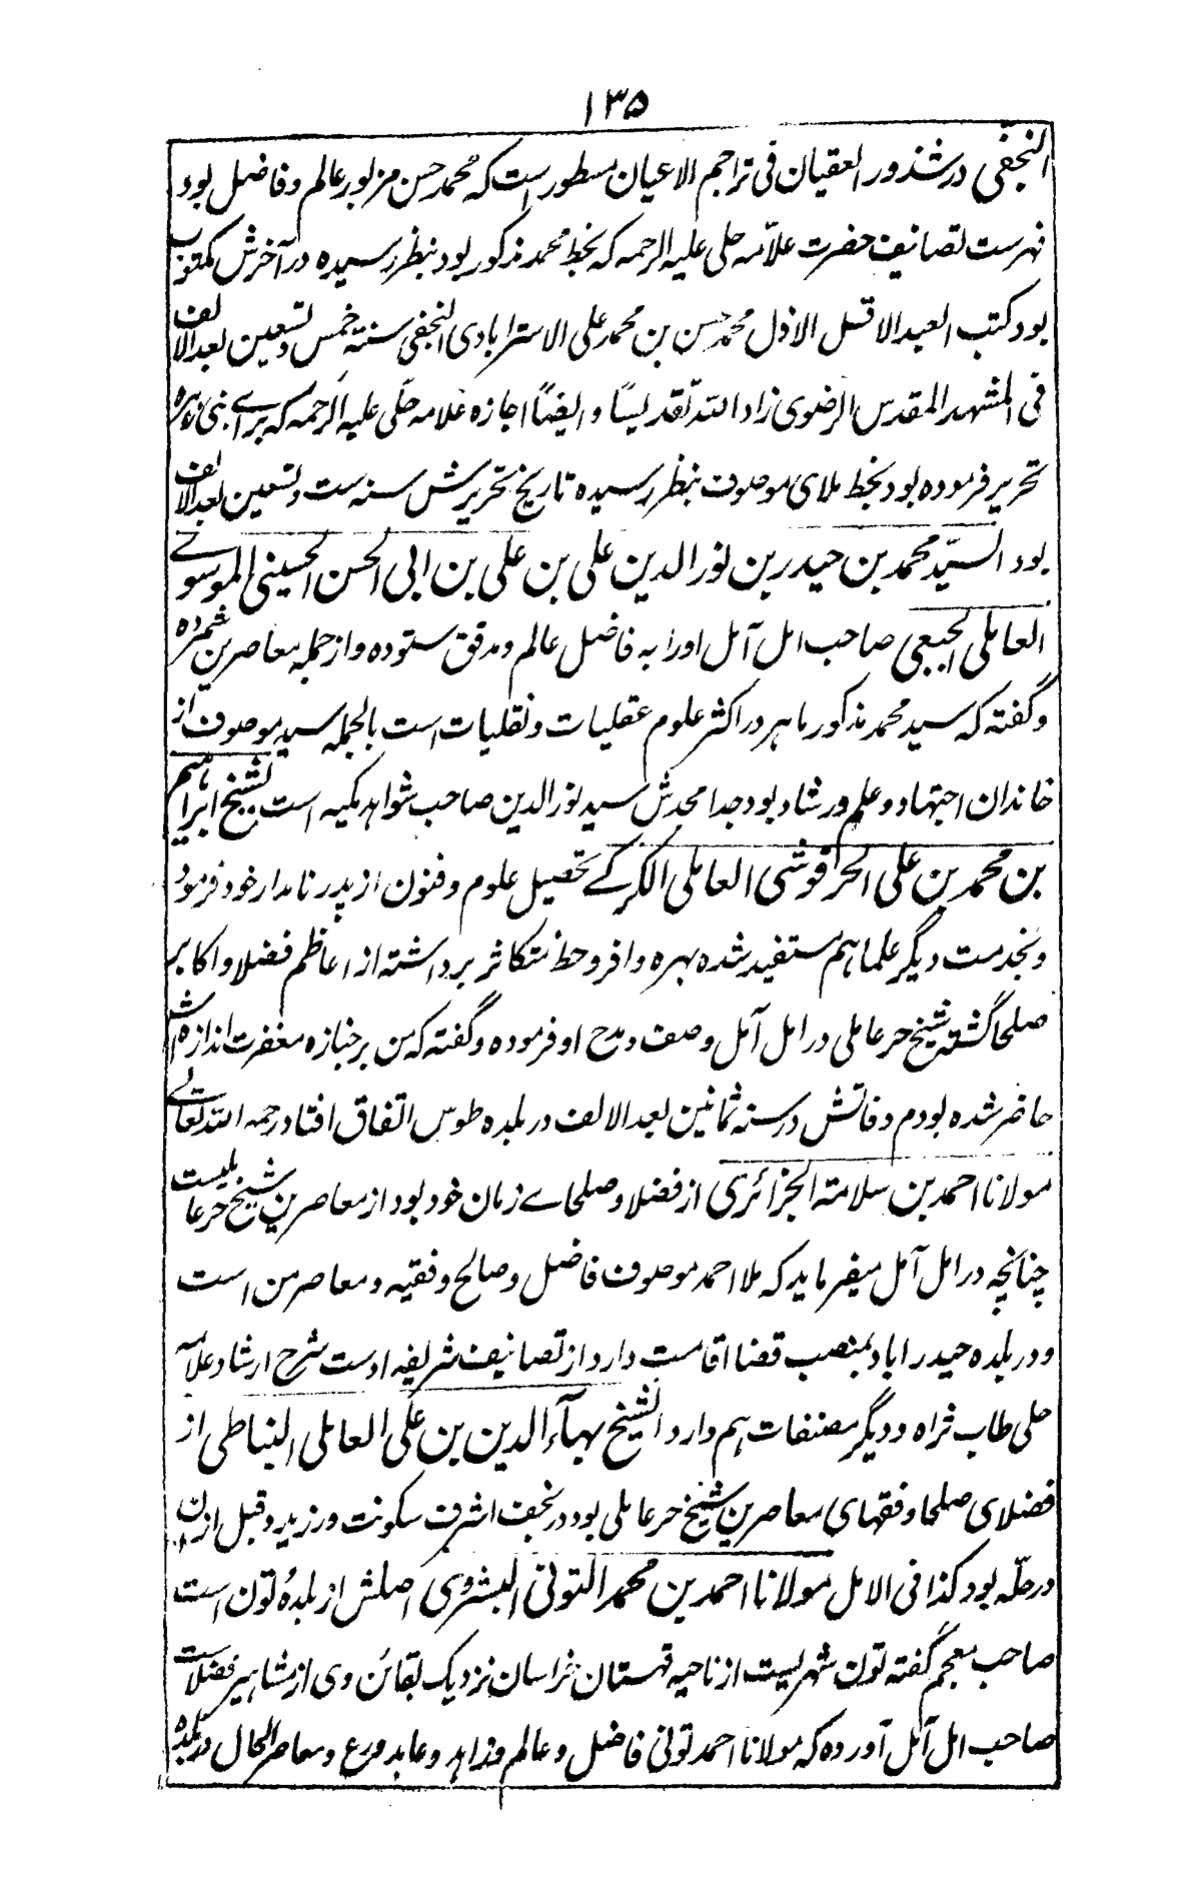 ۱۳۵
النجفی در شذور العقیان فی تراجم الاعیان مسطور است که محمد حسن مزبور عالم و فاضل بود
فهرست تصانیف حضرت علامه حلی علیه الرحمه که بخط محمد مذکور بود بنظر رسیده در آخرش مکتوب
بود کتب العبد الاقل الاذل محمد حسن بن محمد علی الاسترابادی النجفی سنة خمس و تسعین بعد الالف
فی المشهد المقدس الرضوی زاد الله تقدیسًا و ایضًا اجازه علامه حلّی علیه الرحمه که برای بنی زهره
تحریر فرموده بود بخط ملای موصوف بنظر رسیده تاریخ تحریرش سنه ست و تسعین بعد الالف
بود السیّد محمد بن حیدر بن نور الدین علی بن علی بن ابی الحسن الحسینی الموسوے
العاملی الجبعی صاحب امل آمل اورا به فاضل عالم و مدقق ستوده و از جمله معاصرین شمرده
و گفته که سید محمد مذکور ماهر در اکثر علوم عقلیات و نقلیات است بالجمله سید موصوف از
خاندان اجتهاد و علم و رشاد بود جد امجدش سید نور الدین صاحب شواهد مکیه است الشیخ ابراهیم
بن محمد بن علی الحرفوشی العاملی الکرکے تحصیل علوم و فنون از پدر نامدار خود فرمود
و بخدمت دیگر علما هم مستفید شده بهره وافر و حظ متکاثر برداشته از اعاظم فضلا و اکابر
صلحا گشته شیخ حر عاملی در امل آمل وصف و مدح او فرموده و گفته که من بر جنازه مغفرت اندازه اش
حاضر شده بودم وفاتش در سنه ثمانین بعد الالف در بلده طوس اتفاق افتاد رحمه الله تعالے
مولانا احمد بن سلامة الجزائری از فضلا و صلحاے زمان خود بود از معاصرین شیخ حر عاملیست
چنانچه در امل آمل میفرماید که ملا احمد موصوف فاضل و صالح و فقیه و معاصر من است
و در بلده حیدراباد بمنصب قضا اقامت دارد از تصانیف شریفه اوست شرح ارشاد علامه
حلی طاب ثراه و دیگر مصنفات هم دارد الشیخ بهآء الدین بن علی العاملی النباطی از
فضلای صلحا و فقهای معاصرین شیخ حر عاملی بود در نجف اشرف سکونت ورزید و قبل ازان
در حلّه بود کذا فی الامل مولانا احمد بن محمد التونی البشروی اصلش از بلدهٔ تون است
صاحب معجم گفته تون شهریست از ناحیه قهستان خراسان نزدیک بقائن وی از مشاهیر فضلاست
صاحب امل آمل آورده که مولانا احمد تونی فاضل و عالم و زاهد و عابد و ورع و معاصر الحال در بلده